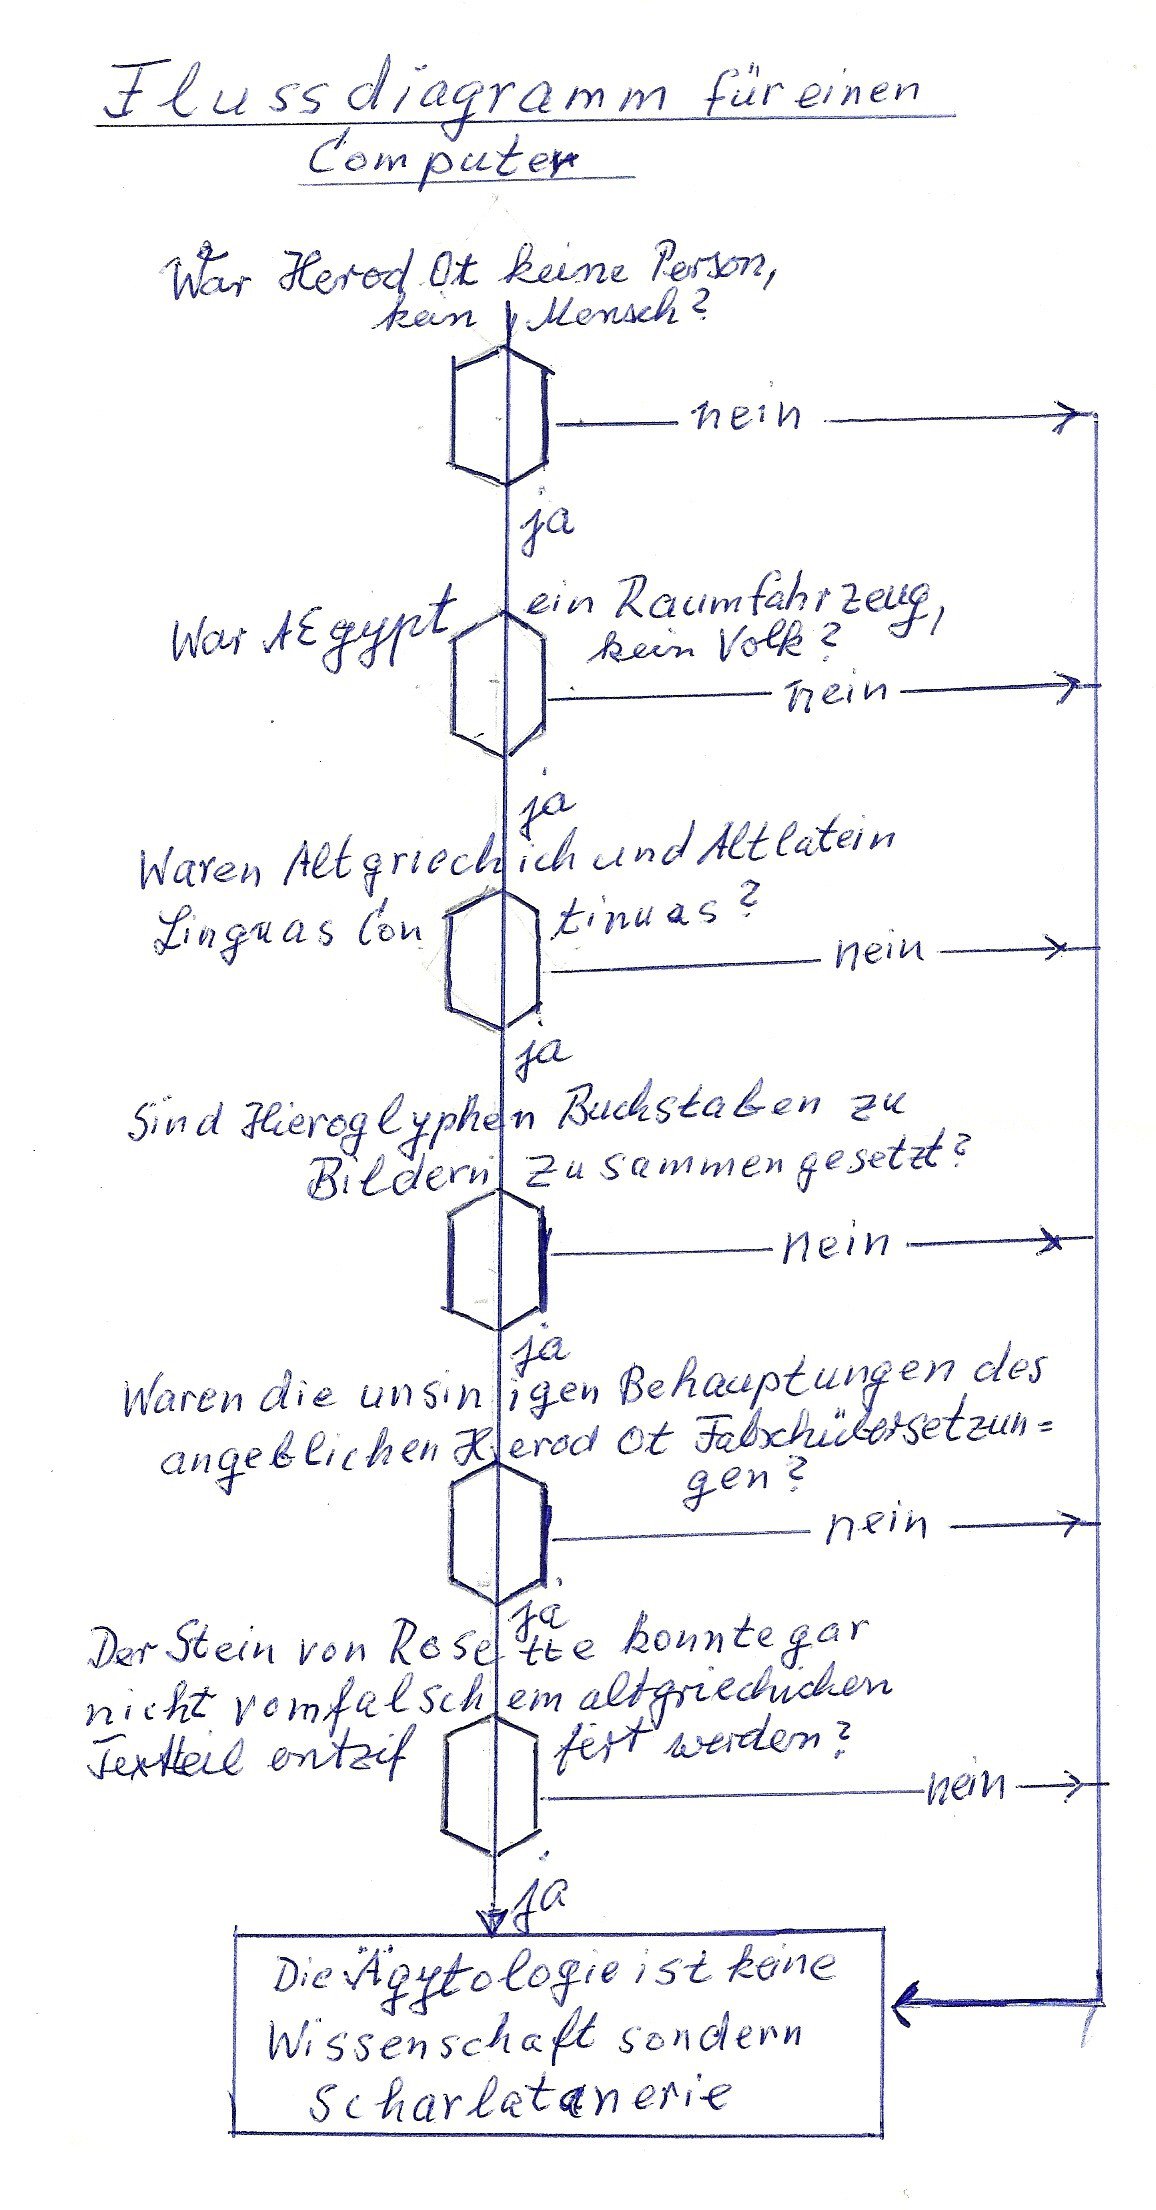 Flussdiagramm für einen
Computer
War Herod Ot keine Person,
kein Mensch?
nein
ja
War AEgypt ein Raumfahrzeug,
kein Volk?
nein
ja
Waren Altgriechich und Altlatein
Linguas Continuas?
nein
ja
Sind Hieroglyphen Buchstaben zu
Bildern zusammengesetzt?
nein
ja
Waren die unsinigen Behauptungen des
angeblichen Herod Ot Falschübersetzun=
gen?
nein
ja
Der Stein von Rosette konnte gar
nicht vom falschem altgriechichen
Textteil entziffert werden?
nein
ja
Die Ägytologie ist keine
Wissenschaft sondern
Scharlatanerie